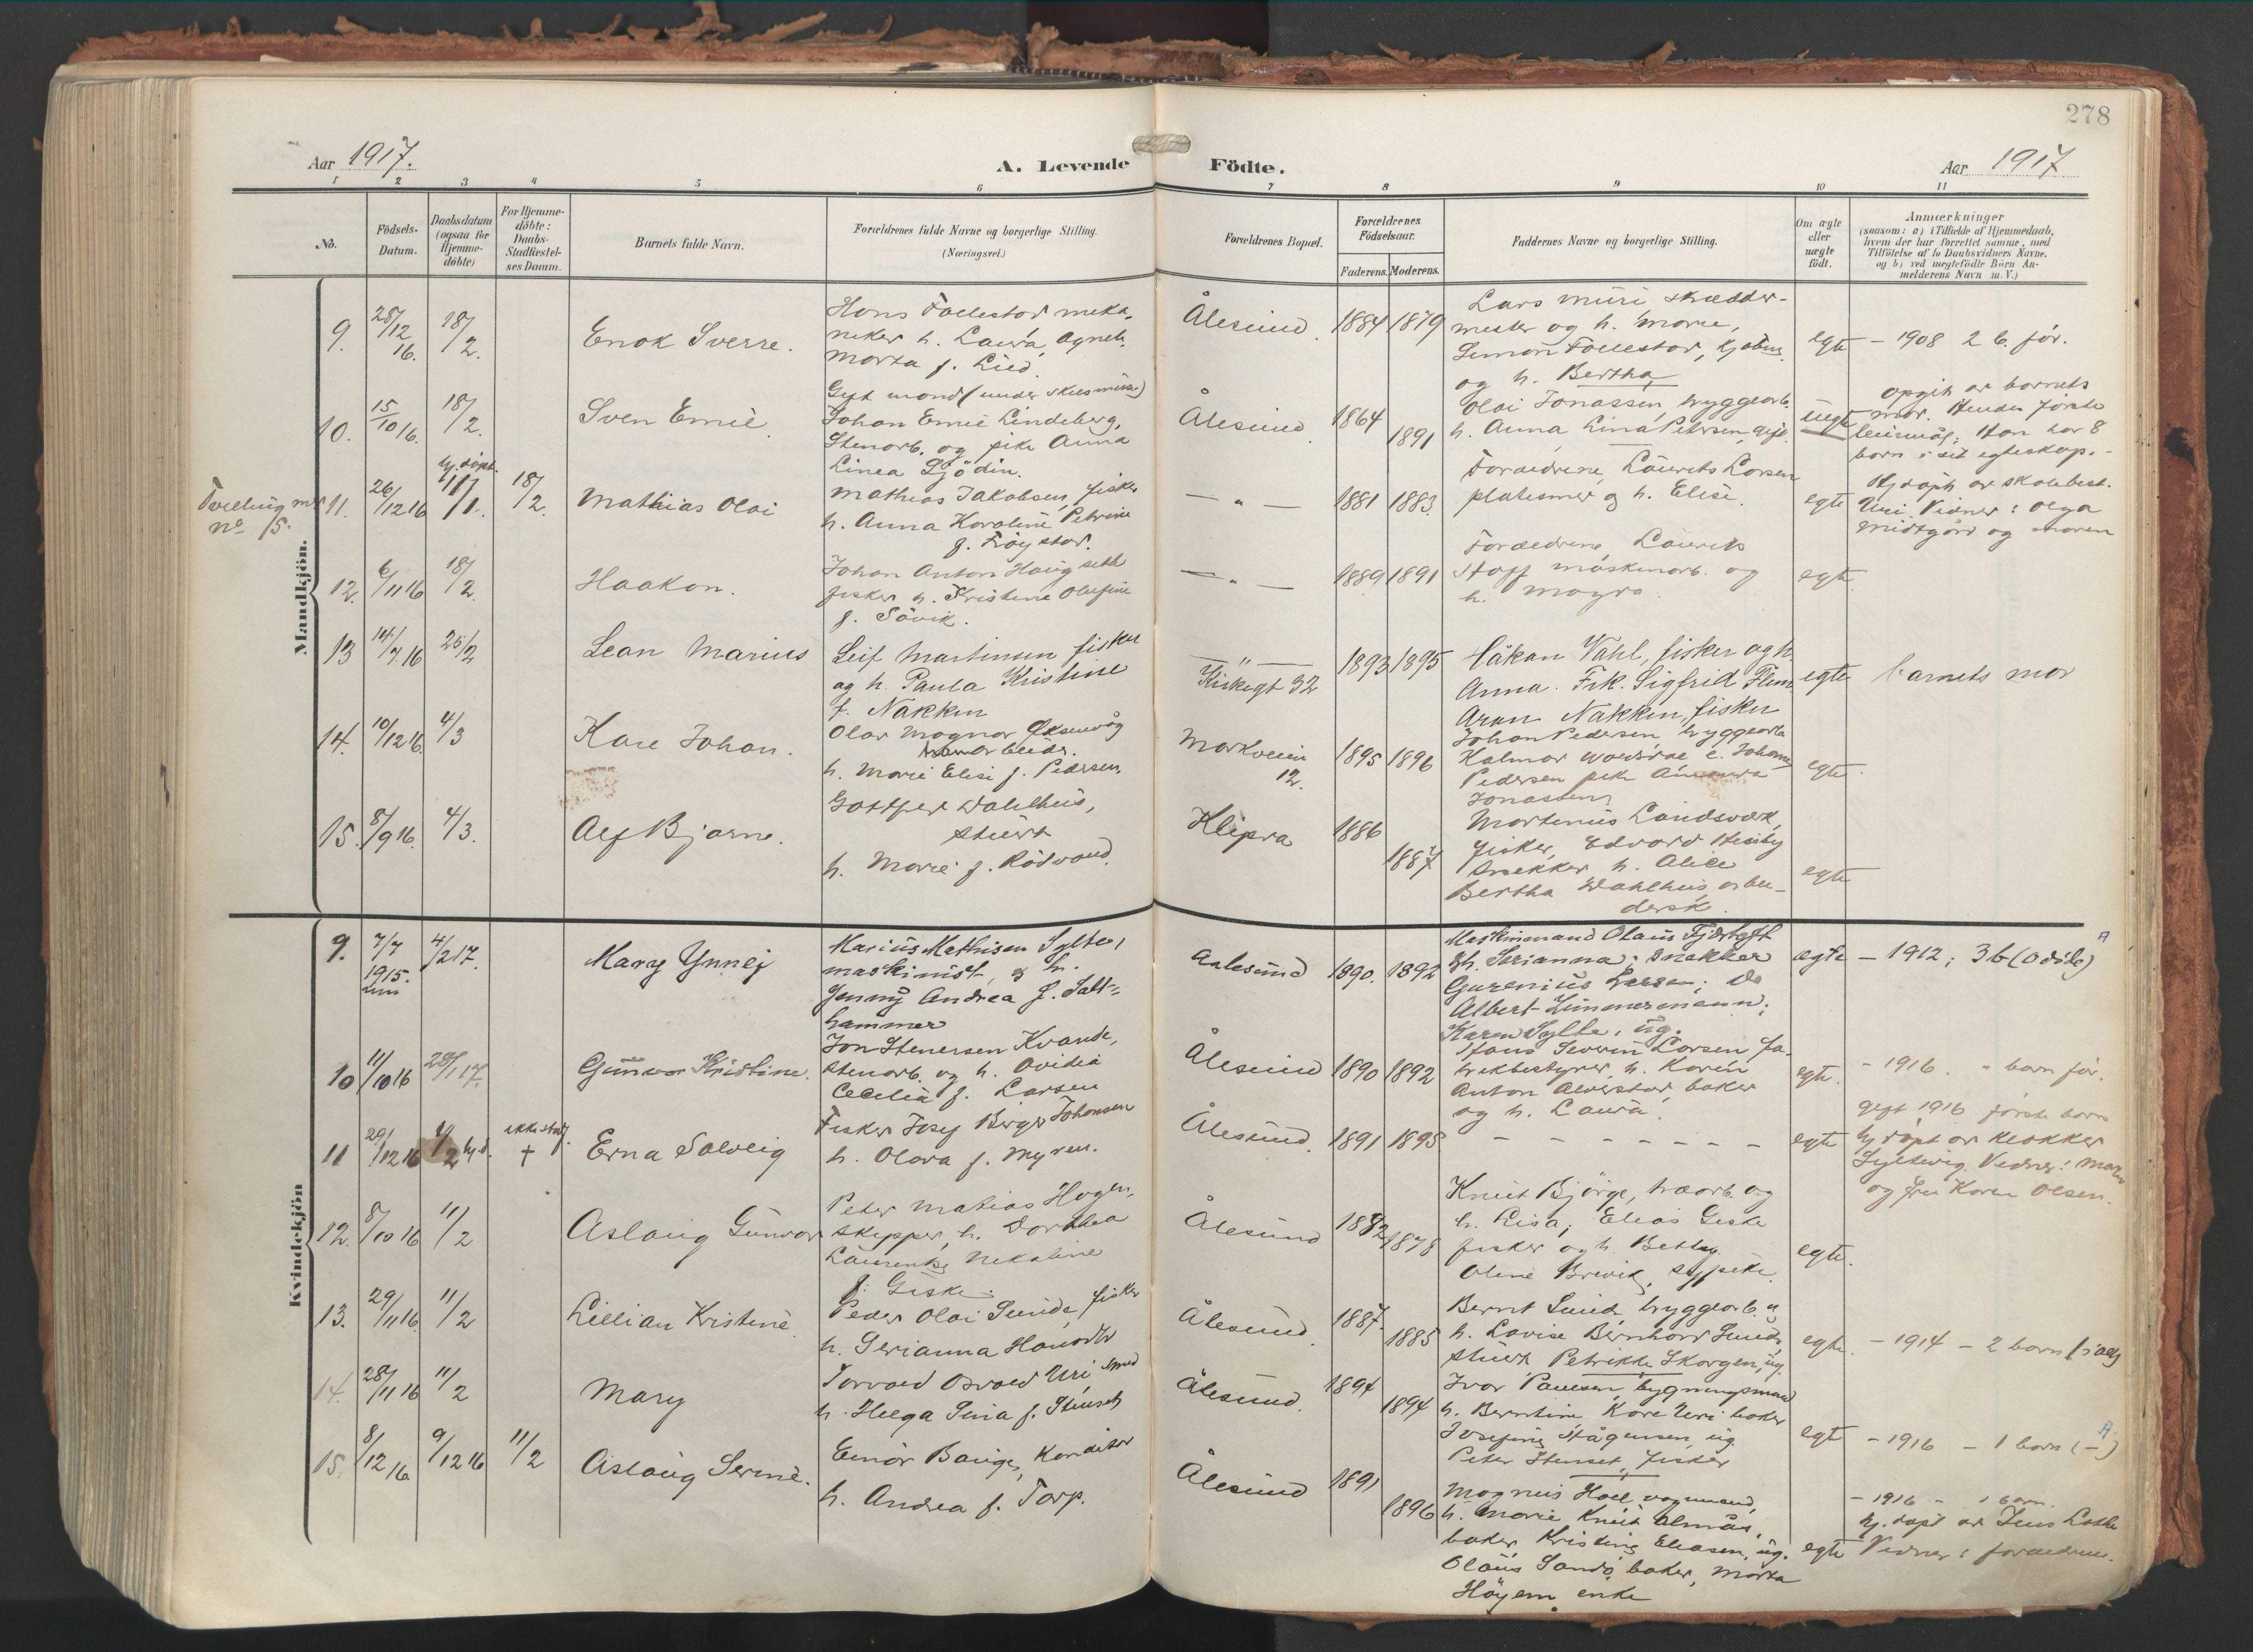 278
Aar 1917.
A. Levende Födte.
Aar 1917
1 2 3 4 5 6 7 8 9 10 11
No.
Födsels-
Datum.
Daabsdatum
(ogsaa for
Hjemme-
döbte)
For Hjemme-
döbte:
Daabs-
Stadfæstel-
ses Datum.
Barnets fulde Navn.
Forældrenes fulde Navne og borgerlige Stilling.
(Næringsvei.)
Forældrenes Bopæl.
Forældrenes
Födselsaar.
Faderens. Moderens.
Faddernes Navne og borgerlige Stilling.
Om ægte
eller
uægte
födt.
Anmærkninger
(saasom: a) i Tilfælde af Hjemmedaab,
hvem der har forrettet samme, med
Tilföielse af to Daabsvidners Navne,
og b) ved uægtefödte Börn An-
melderens Navn m. V.)
Mandkjön.
9. 28/12 16. 18/2.
Enok Sverre.
Hans Follestad meka-
niker h. Laura Agnete
Marta f. Lied.
Ålesund 1884 1879
Lars Muri skrædder-
mester og h. Marie,
Simon Follestad, kjøbm.
og h. Bertha
egte
- 1908 2 b. før.
10. 15/10 16. 18/2.
Sven Emil
Gift mand (under skilsmisse)
Johan Emil Lindeberg,
Stenarb. og pike Anna
Linea Sjödin.
Ålesund 1864 1891
Olai Jonassen, bryggearb.
h. Anna Lina Petersen,
uegte
opgit av barnets
mor. Hendes første
leiermål; Han har 8
barn i sit egteskap.-
Tvilling m.
no 15.
11. 26/12 16 hj. döpt. 1/1. 18/2.
Mathias Olai
Mathias Jakobsen, fisker
h. Anna Karoline Petrine
f. Frøystad.
— " — 1881 1883.
Forældrene, Laurits Larsen
platesmed og h. Elise.
egte
Hj döpt av skolebest.
Uri. Vidner: Olga
Midtgård og moren
12. 6/11 16 18/2.
Haakon.
Johan Anton Haugseth
fisker h. Kristine Olufine
f. Søvik.
— " — 1889 1891
Forældrene, Laurits
Stoff maskinarb. og
h. Magna.
egte
13 14/7 16 25/2
Lean Marius
Leif Martinsen fisker
og h. Paula Kristine
f. Nakken
— " —
Kirkegt 32
1893 1895
Håkan Vahl, fisker og h.
Anna. Frk. Sigfrid Flem
Aron Nakken, fisker
egte
barnets mor
14. 10/12 16. 4/3
Kare Johan.
Olav Magnar Oksevåg
h. Marie Elise f. Pedersen
Markveien
12.
1895 1896
Johan Pedersen bryggearb
Kalmar
Pedersen pike
Jonassen
egte.
15. 8/9 16. 4/3.
Alf Bjarne.
Gottfred Dahlhus,
stuert
h. Marie f. Rødvand.
Klipra 1886 1887
Martinus Landsvæk,
fisker, Edvard Heiby
snekker h. Alice
Bertha Dahlhus, arbei-
dersk.
egte
Kvindekjön
9. 7/7 1915. 4/2 17.
Mary Ynnej
Marius Mathisen Sylte,
maskinist, og h.
Jenny Andrea f. Salt-
hammer
Aalesund 1890. 1892
Maskinmand Olaus Fjørtoft
& h. Serianna; snekker
Gurenius Larsen; do
Albert Zimmermann;
Karen Sylte, ug.
ægte
- 1912; 3b (0 døde)
10 11/10 16 28/1 17.
Gunvor Kristine.
Jon Stenersen Kvande,
stenarb. og h. Ovidia
Cecilia f. Larsen
Ålesund 1890 1892
Hans Severin Larsen, fa-
brikbestyrer, h. Karen
Anton Alvestad, baker
og h. Laura.
egte.
- 1916. " barn før.
11 29/12 16 1/2 hjd. ikke stadf. †
Erna Solveig
Fisker Josef Birger Johansen
h. Olava f. Myren.
Ålesund. 1891 1895
- - - - - - - -
egte
gift 1916 første barn
hj døpt av klokker
Syltevig. Vidner: Moren
og fru Karen Olsen.
12. 8/10 16 11/2
Aslaug Gunvor
Peter Matias Hagen,
skipper, h. Dorthea
Laurentse Nikoline
f. Giske.
Ålesund 1882 1878
Knut Bjørge, træarb. og
h. Lisa; Elias Giske
fisker og h. Betsy.
Oline Brevik, sypike.
egte.
13. 29/11 16. 11/2
Lillian Kristine
Peder Olai Sunde, fisker
h. Serianna
Ålesund. 1887. 1885
Bernt Sunde, bryggearb. &
h. Lovise Bernhard Sunde,
stuert Petrikke Skorgen, ug.
egte.
- 1914 - 2 barn
14. 28/11 16 11/2
Mary
Torvald Osvald Uri, smed
h. Helga Sina f. Stenseth
Ålesund. 1894 1894
Ivar Paulsen, bygningsmand
h. Berntine Kare Uri baker
Josefine Hågensen, ug.
Peter Stenset, fisker
egte
- 1916 - 1 barn (-)
15. 8/12 16 9/12 16 11/2
Aslaug Serine.
Einar Bauge, Konditor
h. Andrea f. Torp.
Ålesund 1891 1896
Magnus Hoel vognmand,
h. Marie Knut Almås,
baker Kristine Eliasen, ug.
Olaus Sandø baker, Marta
Høyem enke
egte
- 1916 - 1 barn.
hj. døpt av Jens
Vidner: forældrene.